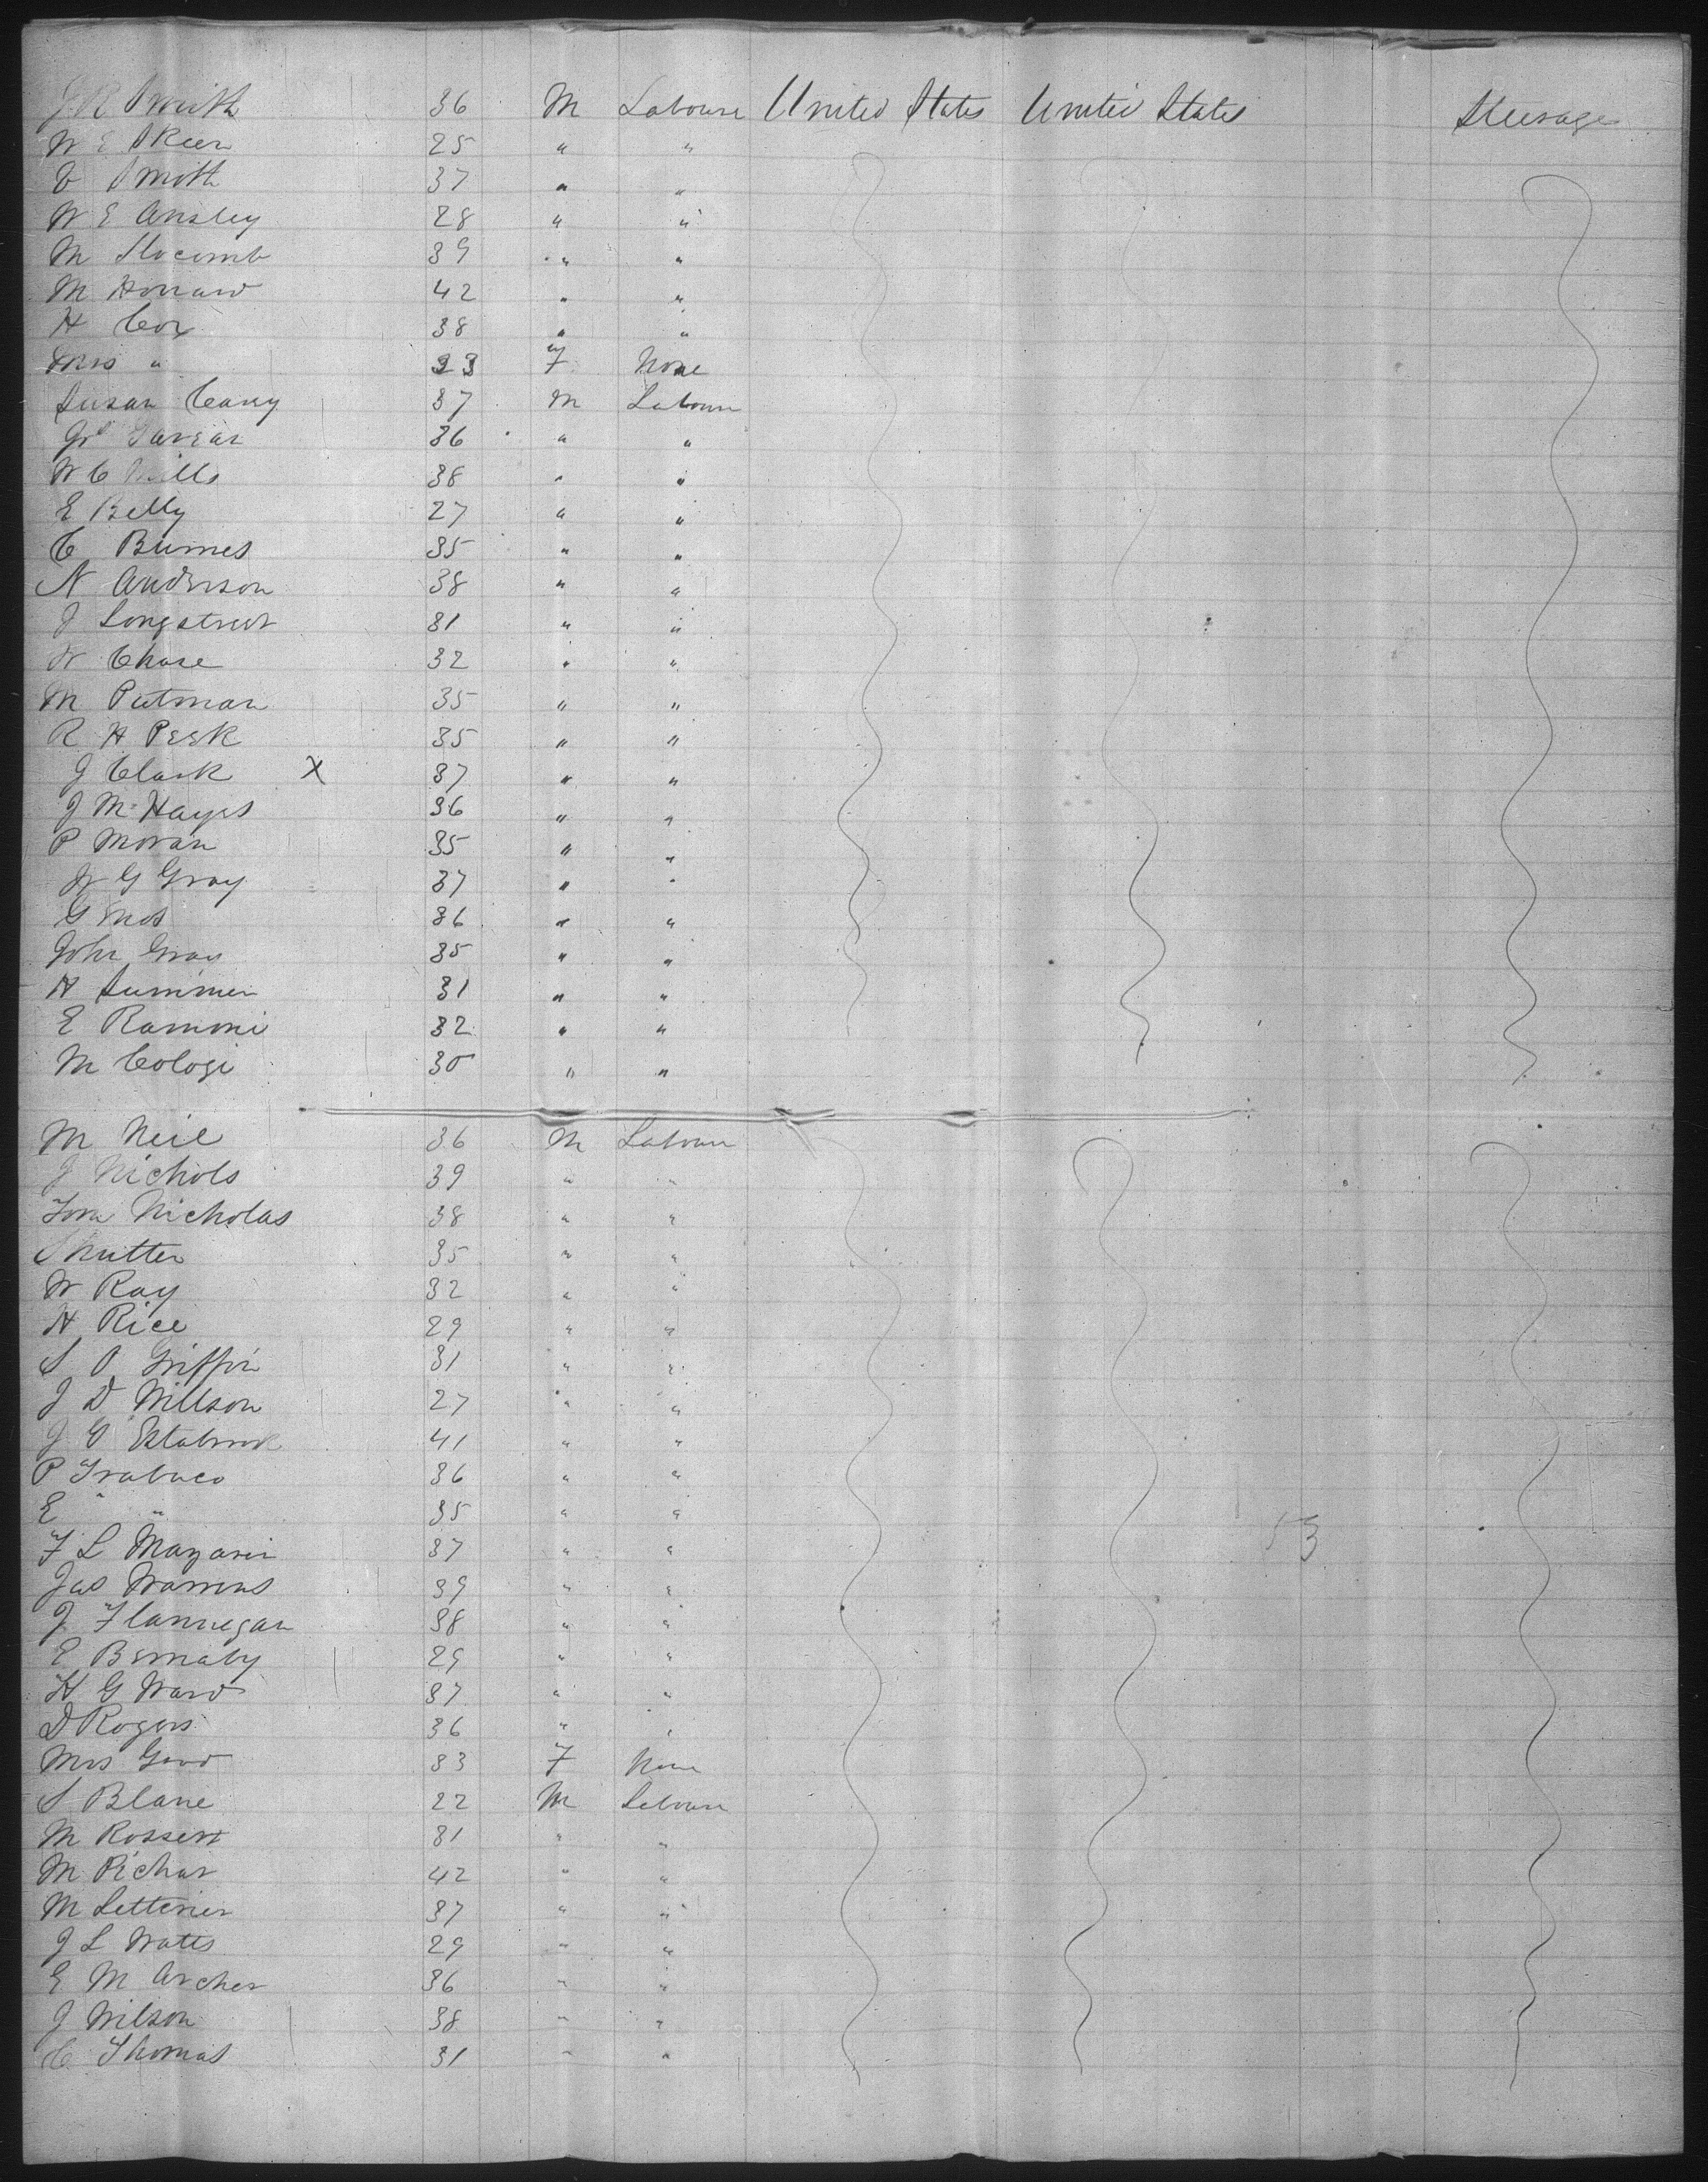 J R Smith 36 M Laboure United States United States Steerage
W E Skeen 25 " "
V Smith 37 " "
W E Ansley 28 " "
M Slocomb 39 " "
M Howard 42 " "
H Cox 38 " "
Mrs " 23 F None
Susan Cany 37 M Laboure
36 " "
W C Mills 38 " "
E Belly 27 " "
C Burnes 35 " "
N Anderson 38 " "
J Longstreet 31 " "
W Chase 32 " "
M Putman 35 " "
R H Peek 35 " "
J Clark X 37 " "
J M Hayes 36 " "
P Moran 35 " "
W G Gray 37 " "
G Enos 36 " "
John Gray 35 " "
H Summer 31 " "
E Ramoni 32 " "
M Cologi 30 " "
M Neil 36 M Laboure
J Nichols 39 " "
Tom Nicholas 38 " "
35 " "
W Ray 32 " "
H Rice 29 " "
S O Griffin 31 " "
J D Willson 27 " "
J G Estabrook 41 " "
P Trabuco 36 " "
E " " 35 " "
F L Mazarin 37 " " 53
Jas Warrens 39 " "
J Flannegan 38 " "
E Bernaby 29 " "
H G Ward 37 " "
D Rogers 36 " "
Mrs Good 33 F None
S Blane 22 M Laboure
M Rossert 31 " "
M Richar 42 " "
M Letterier 37 " "
J L Watts 29 " "
E M Archer 36 " "
J Wilson 38 " "
C Thomas 31 " "